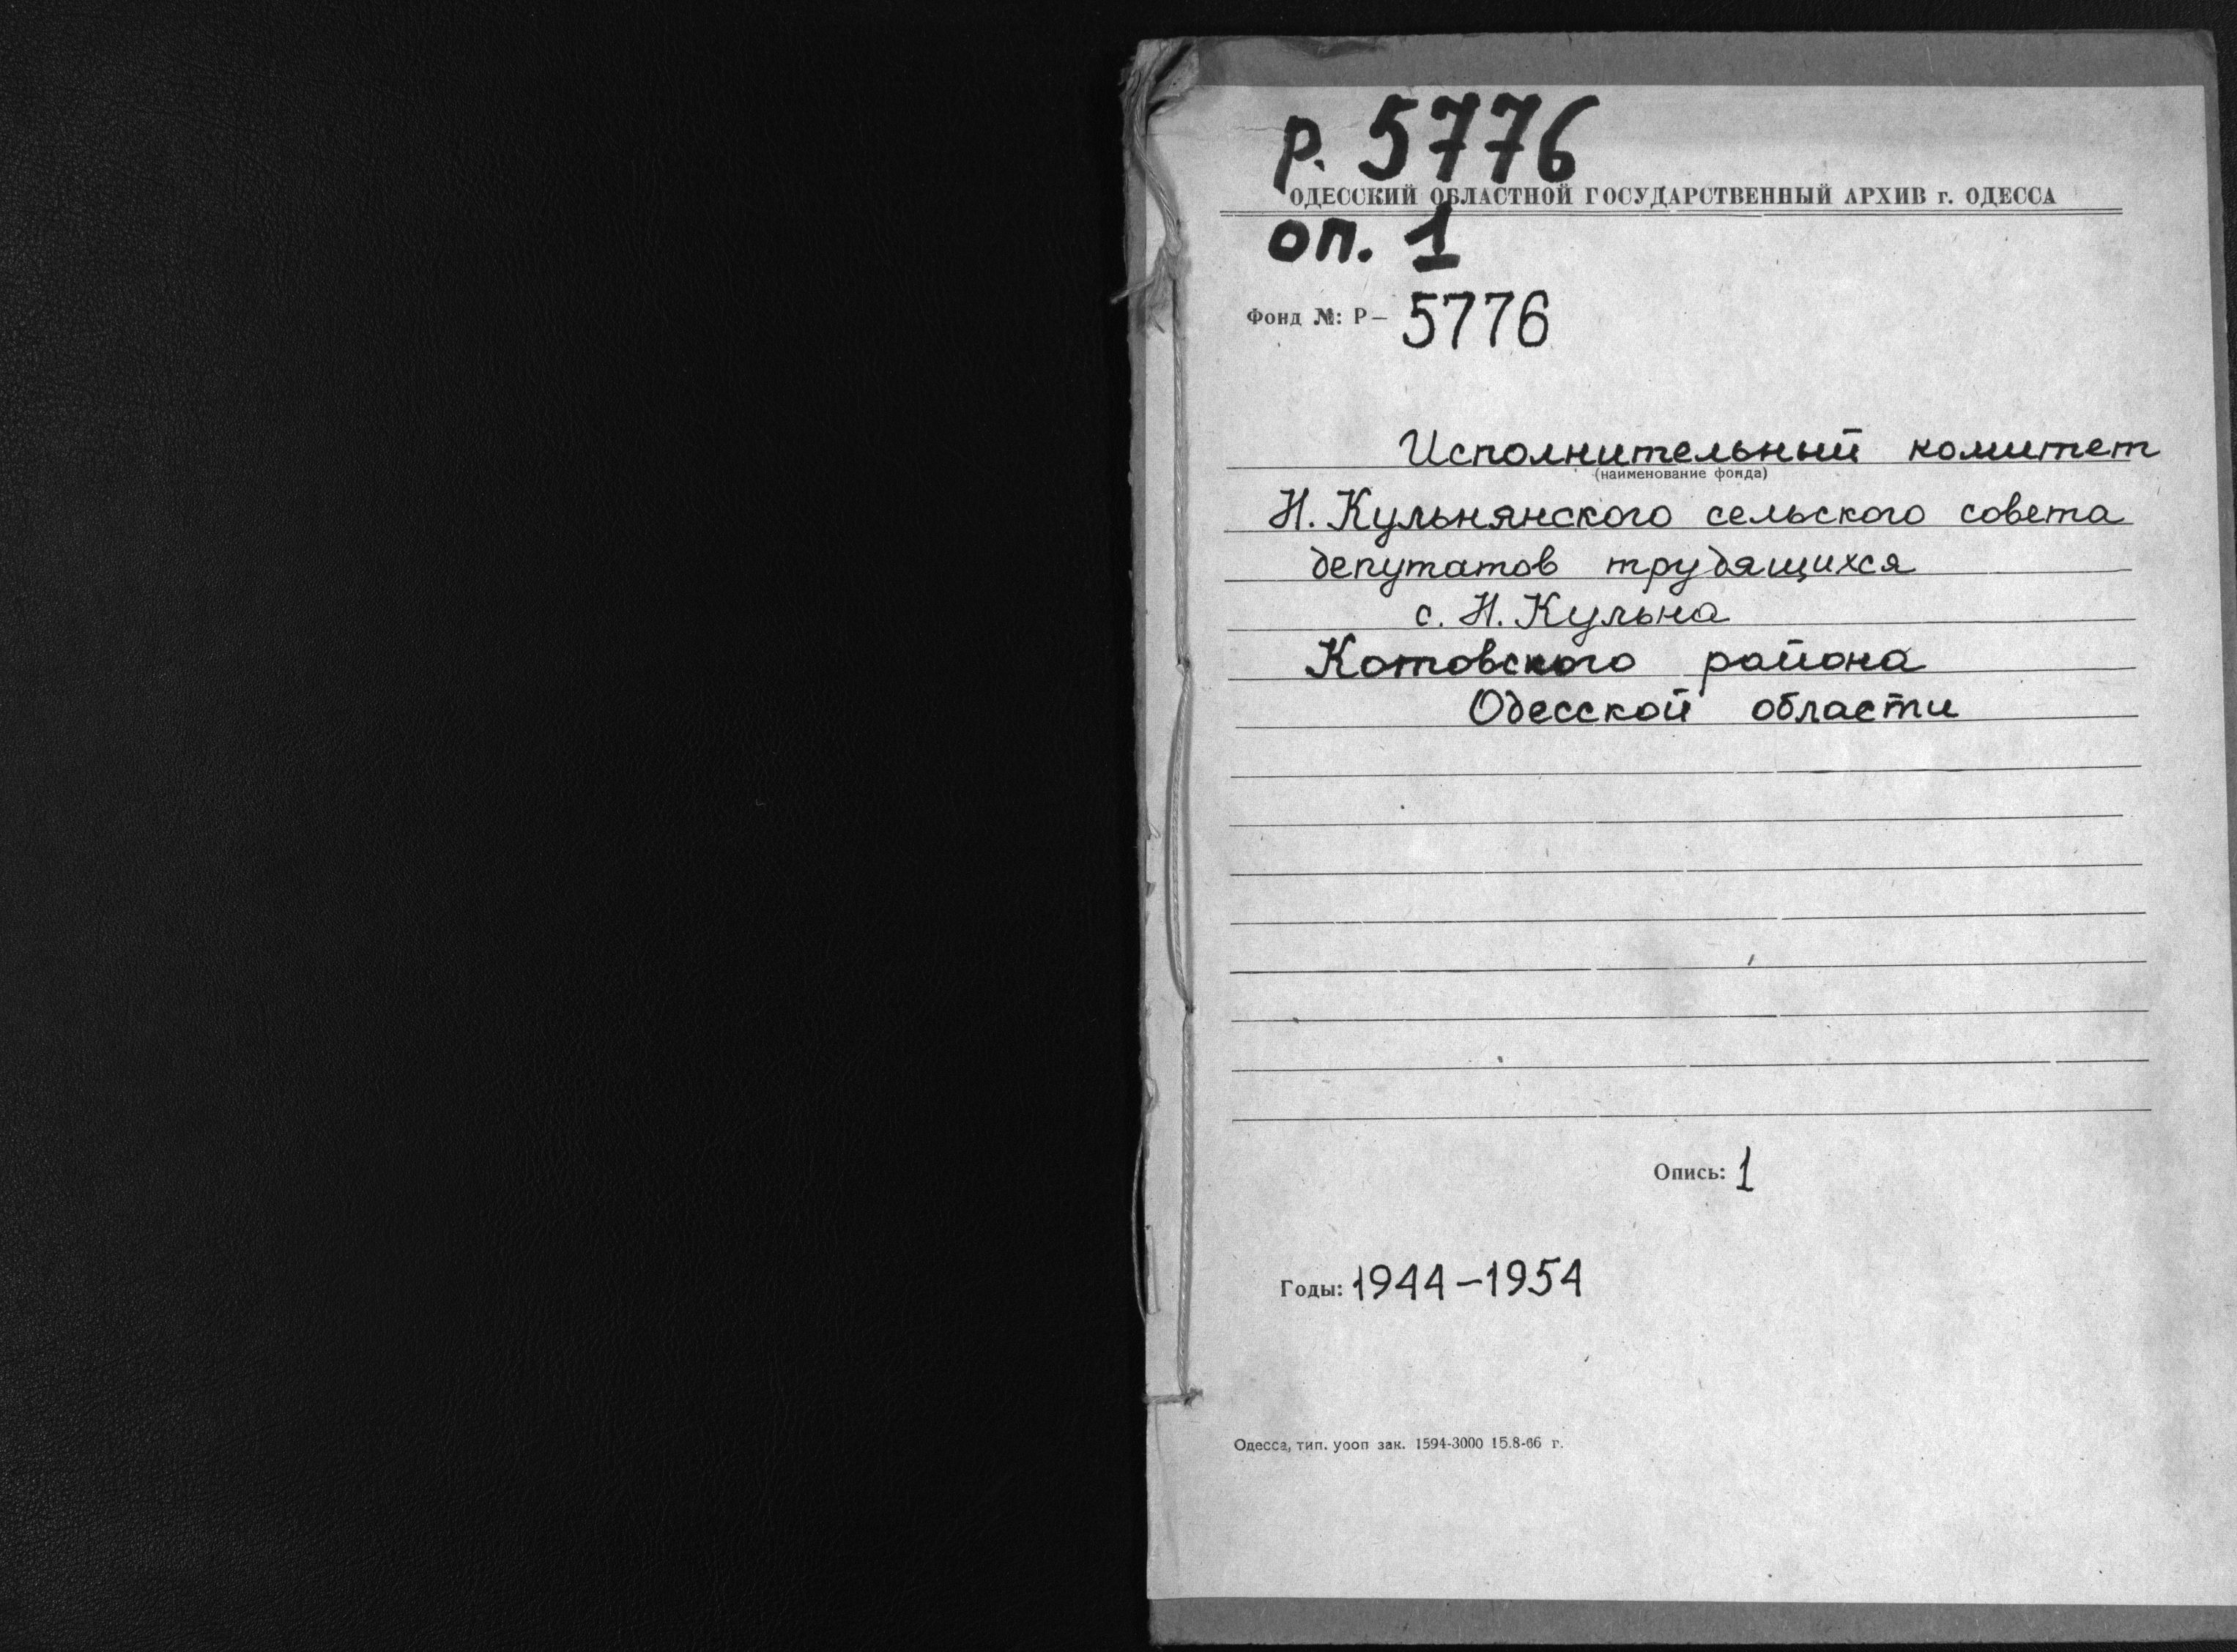 р. 5776
ОДЕССКИЙ ОБЛАСТНОЙ ГОСУДАРСТВЕННЫЙ АРХИВ г. ОДЕССА
оп. 1
Фонд №: Р— 5776
Исполнительный комитет
(наименование фонда)
Н. Кульнянского сельского совета
депутатов трудящихся
с. Н. Кульна
Котовского района
Одесской области
Опись: 1
Годы: 1944–1954
Одесса, тип. уооп зак. 1594-3000 15.8-66 г.